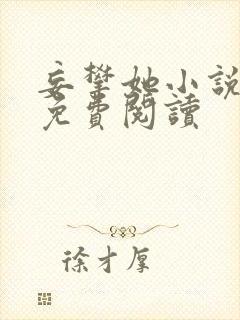 妄攀她小說
免費閱讀
徐才厚